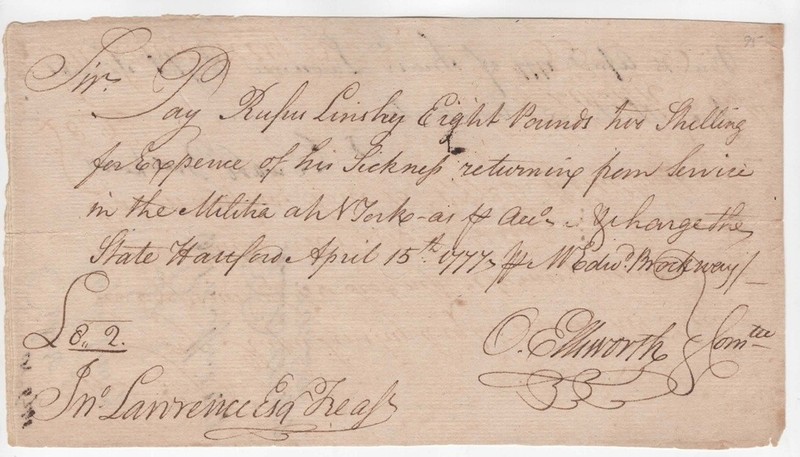 95
Sir, Pay Rufus Linsley Eight Pounds two Shilling
for Expence of his Sickness returning from Service
in the Militia at N York - as ⅌ Acco - & charge the
State Hartford April 15th. 1777. ⅌ Mr Edwd. Brockway
£8,, 2.
O. Ellsworth } Comtee
Jno. Lawrence Esqr Treasr